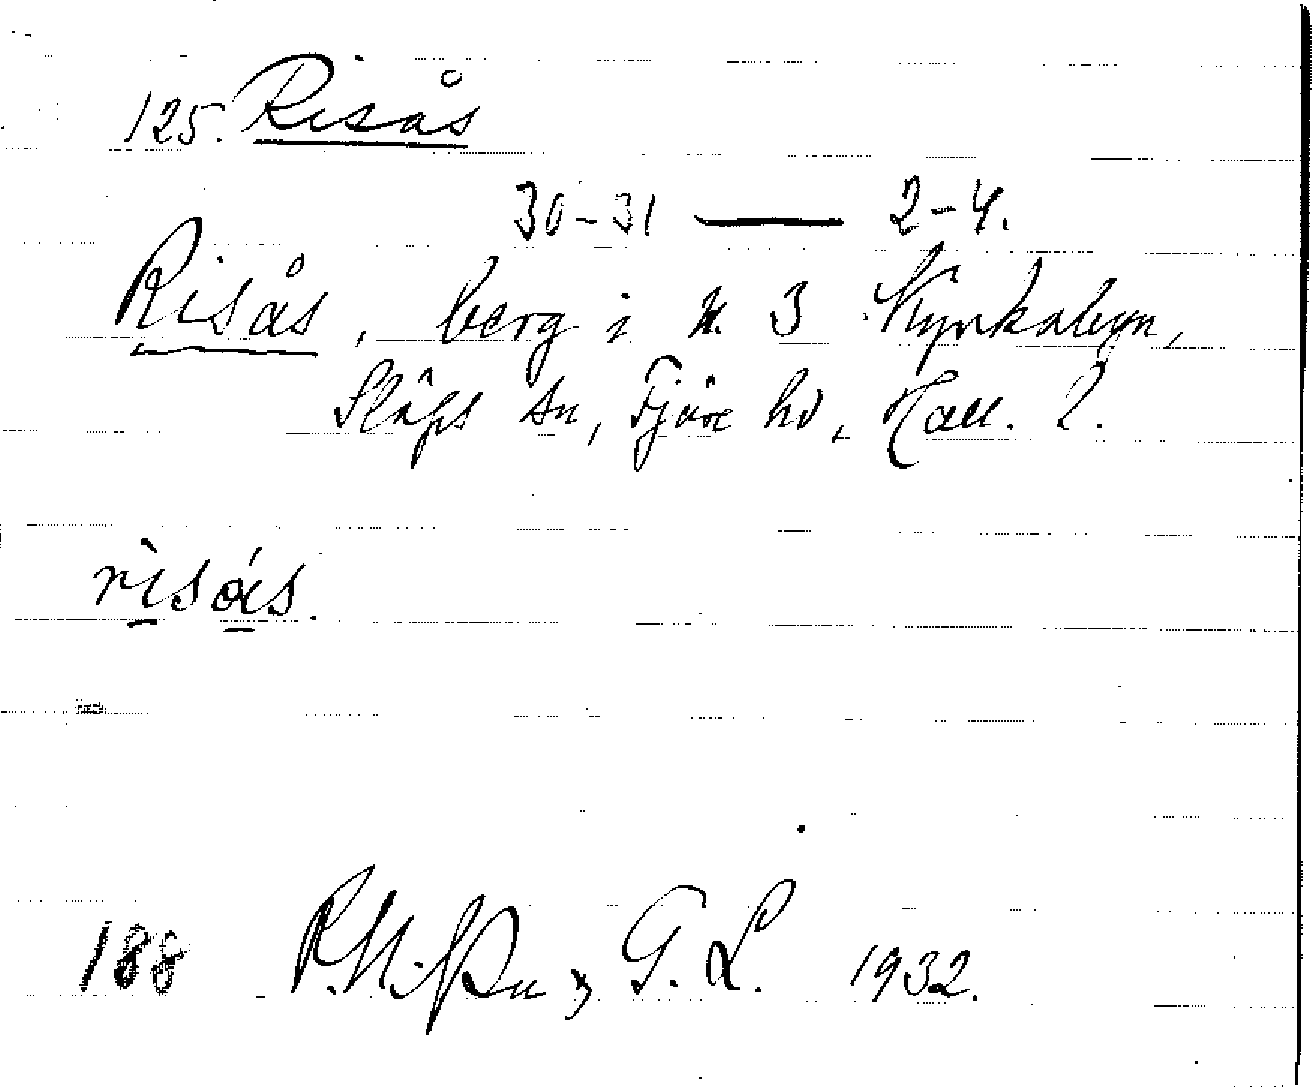 125. Risås
30-31 — 2-4.
Risås, berg i n. 3 Kyrkobyn,
Släps sn, Fjäre hd, Hall. l.
risás.
188 G. L. 1932.